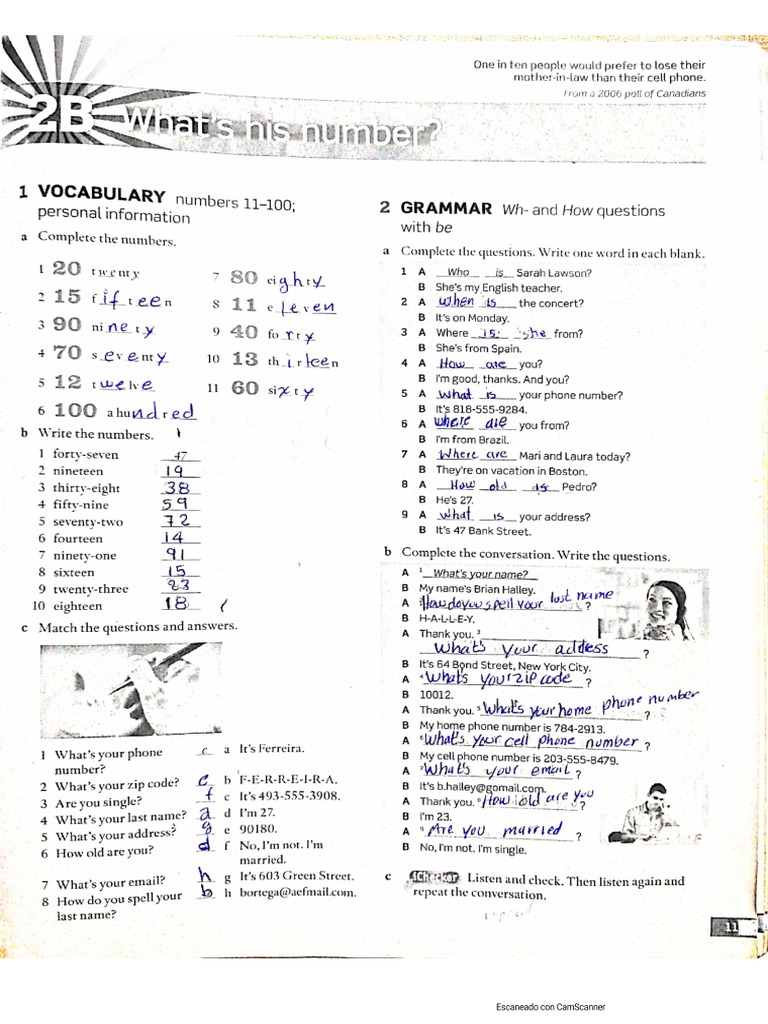 One in ten people would prefer to lose their
mother-in-law than their cell phone.
From a 2006 poll of Canadians
2B What's his number?
1 VOCABULARY numbers 11–100;
personal information
a Complete the numbers.
1 20 twenty
2 15 fifteen
3 90 ninety
4 70 seventy
5 12 twelve
6 100 a hundred
7 80 eighty
8 11 eleven
9 40 forty
10 13 thirteen
11 60 sixty
b Write the numbers.
1 forty-seven 47
2 nineteen 19
3 thirty-eight 38
4 fifty-nine 59
5 seventy-two 72
6 fourteen 14
7 ninety-one 91
8 sixteen 15
9 twenty-three 23
10 eighteen 18
c Match the questions and answers.
1 What's your phone number? c
2 What's your zip code? e
3 Are you single? f
4 What's your last name? a
5 What's your address? g
6 How old are you? d
7 What's your email? h
8 How do you spell your last name? b
a It's Ferreira.
b F-E-R-R-E-I-R-A.
c It's 493-555-3908.
d I'm 27.
e 90180.
f No, I'm not. I'm married.
g It's 603 Green Street.
h bortega@aefmail.com.
2 GRAMMAR Wh- and How questions
with be
a Complete the questions. Write one word in each blank.
1 A Who is Sarah Lawson?
B She's my English teacher.
2 A When is the concert?
B It's on Monday.
3 A Where is she from?
B She's from Spain.
4 A How are you?
B I'm good, thanks. And you?
5 A What is your phone number?
B It's 818-555-9284.
6 A where are you from?
B I'm from Brazil.
7 A Where are Mari and Laura today?
B They're on vacation in Boston.
8 A How old is Pedro?
B He's 27.
9 A What is your address?
B It's 47 Bank Street.
b Complete the conversation. Write the questions.
A 1 What's your name?
B My name's Brian Halley.
A 2 How do you spell your last name ?
B H-A-L-L-E-Y.
A Thank you. 3
What's your address ?
B It's 64 Bond Street, New York City.
A 4 What's your zip code ?
B 10012.
A Thank you. 5 What's your home phone number
B My home phone number is 784-2913.
A 6 What's your cell phone number ?
B My cell phone number is 203-555-8479.
A 7 What's your email ?
B It's b.halley@gomail.com.
A Thank you. 8 How old are you
B I'm 23.
A 9 Are you married ?
B No, I'm not. I'm single.
c 4 Checker Listen and check. Then listen again and
repeat the conversation.
11
Escaneado con CamScanner